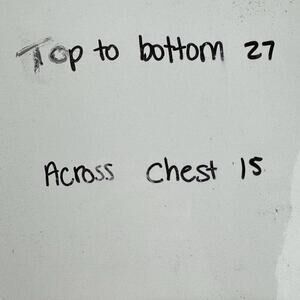 Top to bottom 27
Across Chest 15